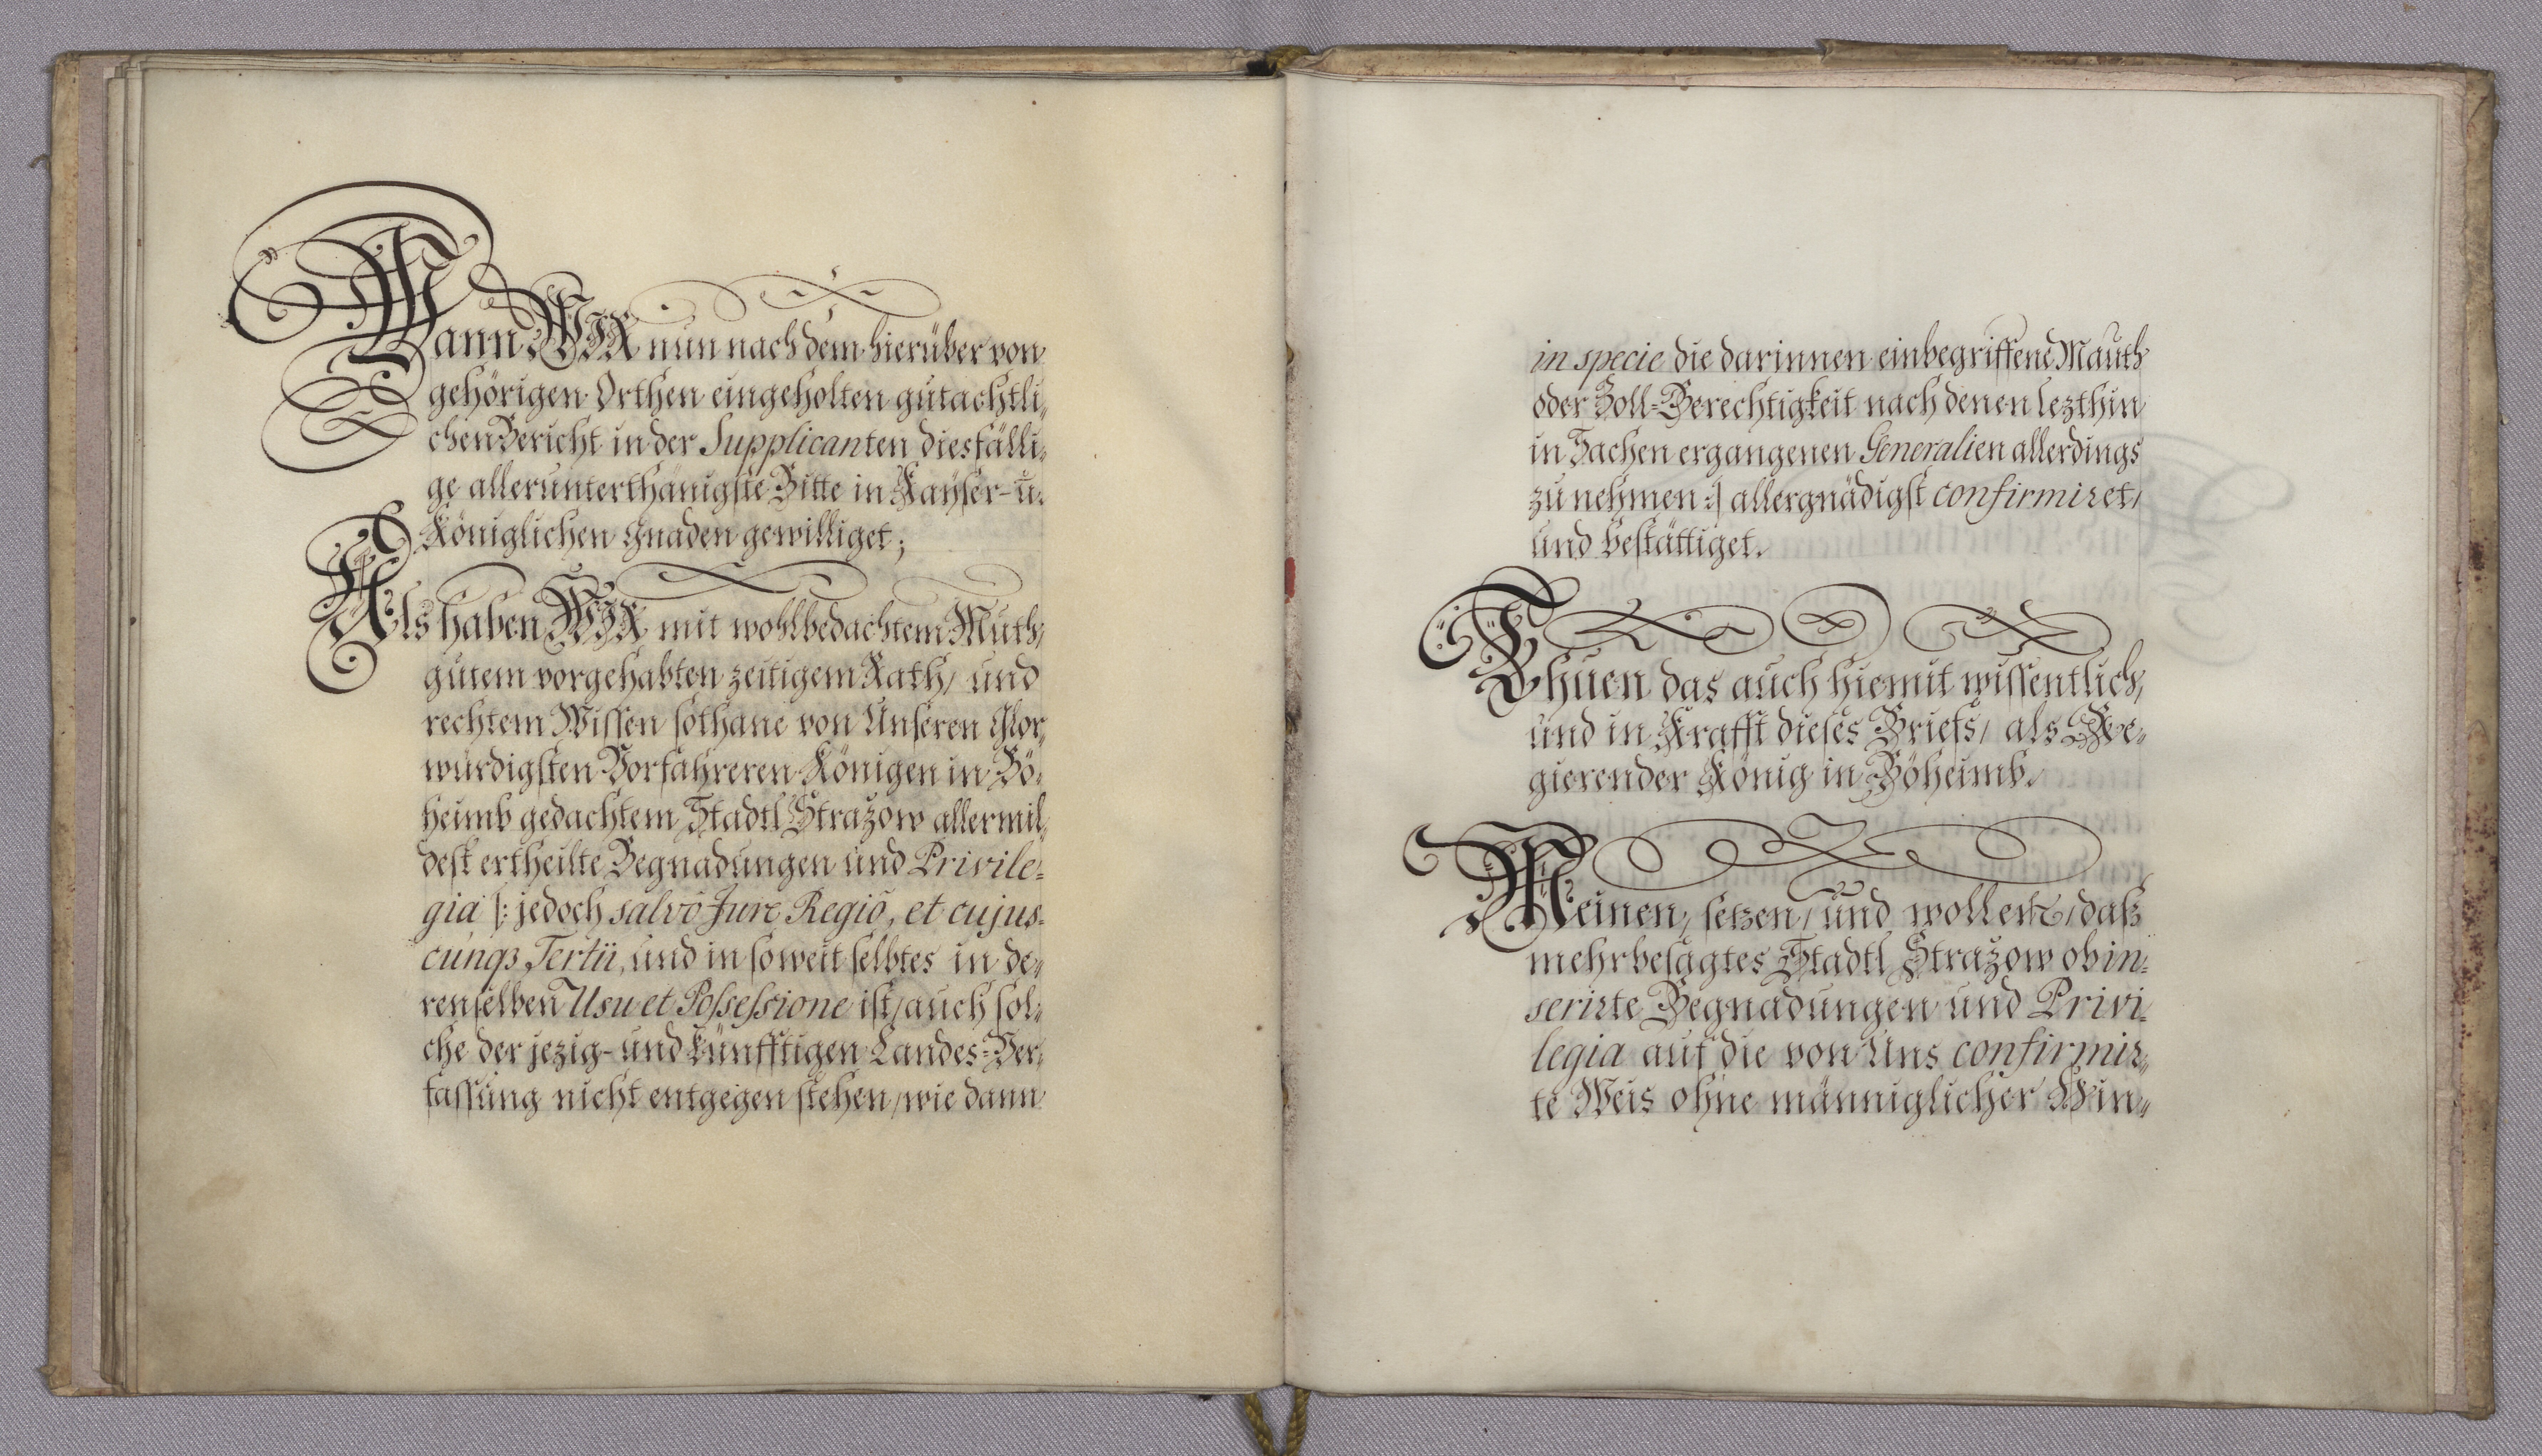 Wann WIR nun nach dem hierüber von
gehörigen Orthen eingeholten gutachtli„
chen Bericht in der Supplicanten diesfälli„
ge allerunterthänigste Bitte in Kayser- u.
Königlichen Gnaden gewilliget;
Als haben WIR mit wohlbedachtem Muth,
gutem vorgehabten zeitigem Rath, und
rechtem Wissen sothane von Unseren Glor„
würdigsten Vorfahreren Königen in Bö„
heimb gedachtem Stadtl Strazow allermil„
dest ertheilte Begnadungen und Privile„
gia |: jedoch salvô Jure Regiô, et cujus„
cunqз Tertii, und in soweit selbtes in de„
renselben Usu et Possessione ist, auch sol„
che der jezig- und künfftigen Landes-Ver„
fassung nicht entgegen stehen, wie dann
in specie die darinnen einbegriffene Mauth
oder Zoll-Berechtigkeit nach denen lezthin
in Sachen ergangenen Generalien allerdings
zu nehmen :| allergnädigst confirmiret,
und bestättiget.
Thuen das auch hiemit wissentlich,
und in Krafft dieses Briefs, als Re„
gierender König in Böheimb.
Meinen, setzen, und wollen, daß
mehrbesagtes Stadtl Strazow ob in„
serirte Begnadungen und Privi„
legia auf die von Uns confirmir„
te Weis ohne männiglicher Hin„